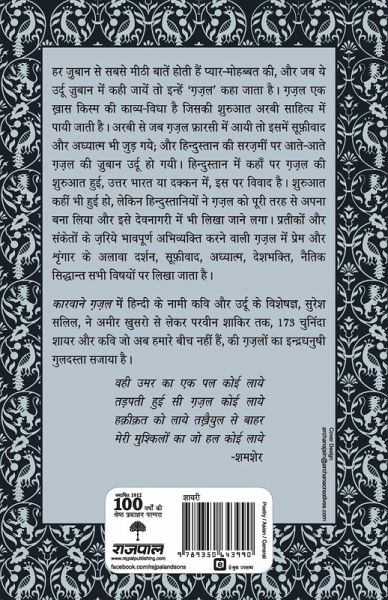 हर ज़ुबान से सबसे मीठी बातें होती हैं प्यार-मोहब्बत की, और जब ये
उर्दू ज़ुबान में कही जायें तो इन्हें 'ग़ज़ल' कहा जाता है। ग़ज़ल एक
ख़ास किस्म की काव्य-विधा है जिसकी शुरुआत अरबी साहित्य में
पायी जाती है। अरबी से जब ग़ज़ल फ़ारसी में आयी तो इसमें सूफ़ीवाद
और अध्यात्म भी जुड़ गये; और हिन्दुस्तान की सरज़मीं पर आते-आते
ग़ज़ल की ज़ुबान उर्दू हो गयी। हिन्दुस्तान में कहाँ पर ग़ज़ल की
शुरुआत हुई, उत्तर भारत या दक्कन में, इस पर विवाद है। शुरुआत
कहीं भी हुई हो, लेकिन हिन्दुस्तानियों ने ग़ज़ल को पूरी तरह से अपना
बना लिया और इसे देवनागरी में भी लिखा जाने लगा। प्रतीकों और
संकेतों के ज़रिये भावपूर्ण अभिव्यक्ति करने वाली ग़ज़ल में प्रेम और
शृंगार के अलावा दर्शन, सूफ़ीवाद, अध्यात्म, देशभक्ति, नैतिक
सिद्धान्त सभी विषयों पर लिखा जाता है।
कारवाने ग़ज़ल में हिन्दी के नामी कवि और उर्दू के विशेषज्ञ, सुरेश
सलिल, ने अमीर खुसरो से लेकर परवीन शाकिर तक, 173 चुनिंदा
शायर और कवि जो अब हमारे बीच नहीं हैं, की ग़ज़लों का इन्द्रधनुषी
गुलदस्ता सजाया है।
वही उमर का एक पल कोई लाये
तड़पती हुई सी ग़ज़ल कोई लाये
हक़ीक़त को लाये तख़ैयुल से बाहर
मेरी मुश्किलों का जो हल कोई लाये
-शमशेर
Cover Design
स्थापित 1912
100 वर्षों की
श्रेष्ठ प्रकाशन परम्परा
राजपाल
www.rajpalpublishing.com
facebook.com/rajpalandsons
शायरी
9 789350 643990
ई-बुक उपलब्ध
Poetry / Asian / General